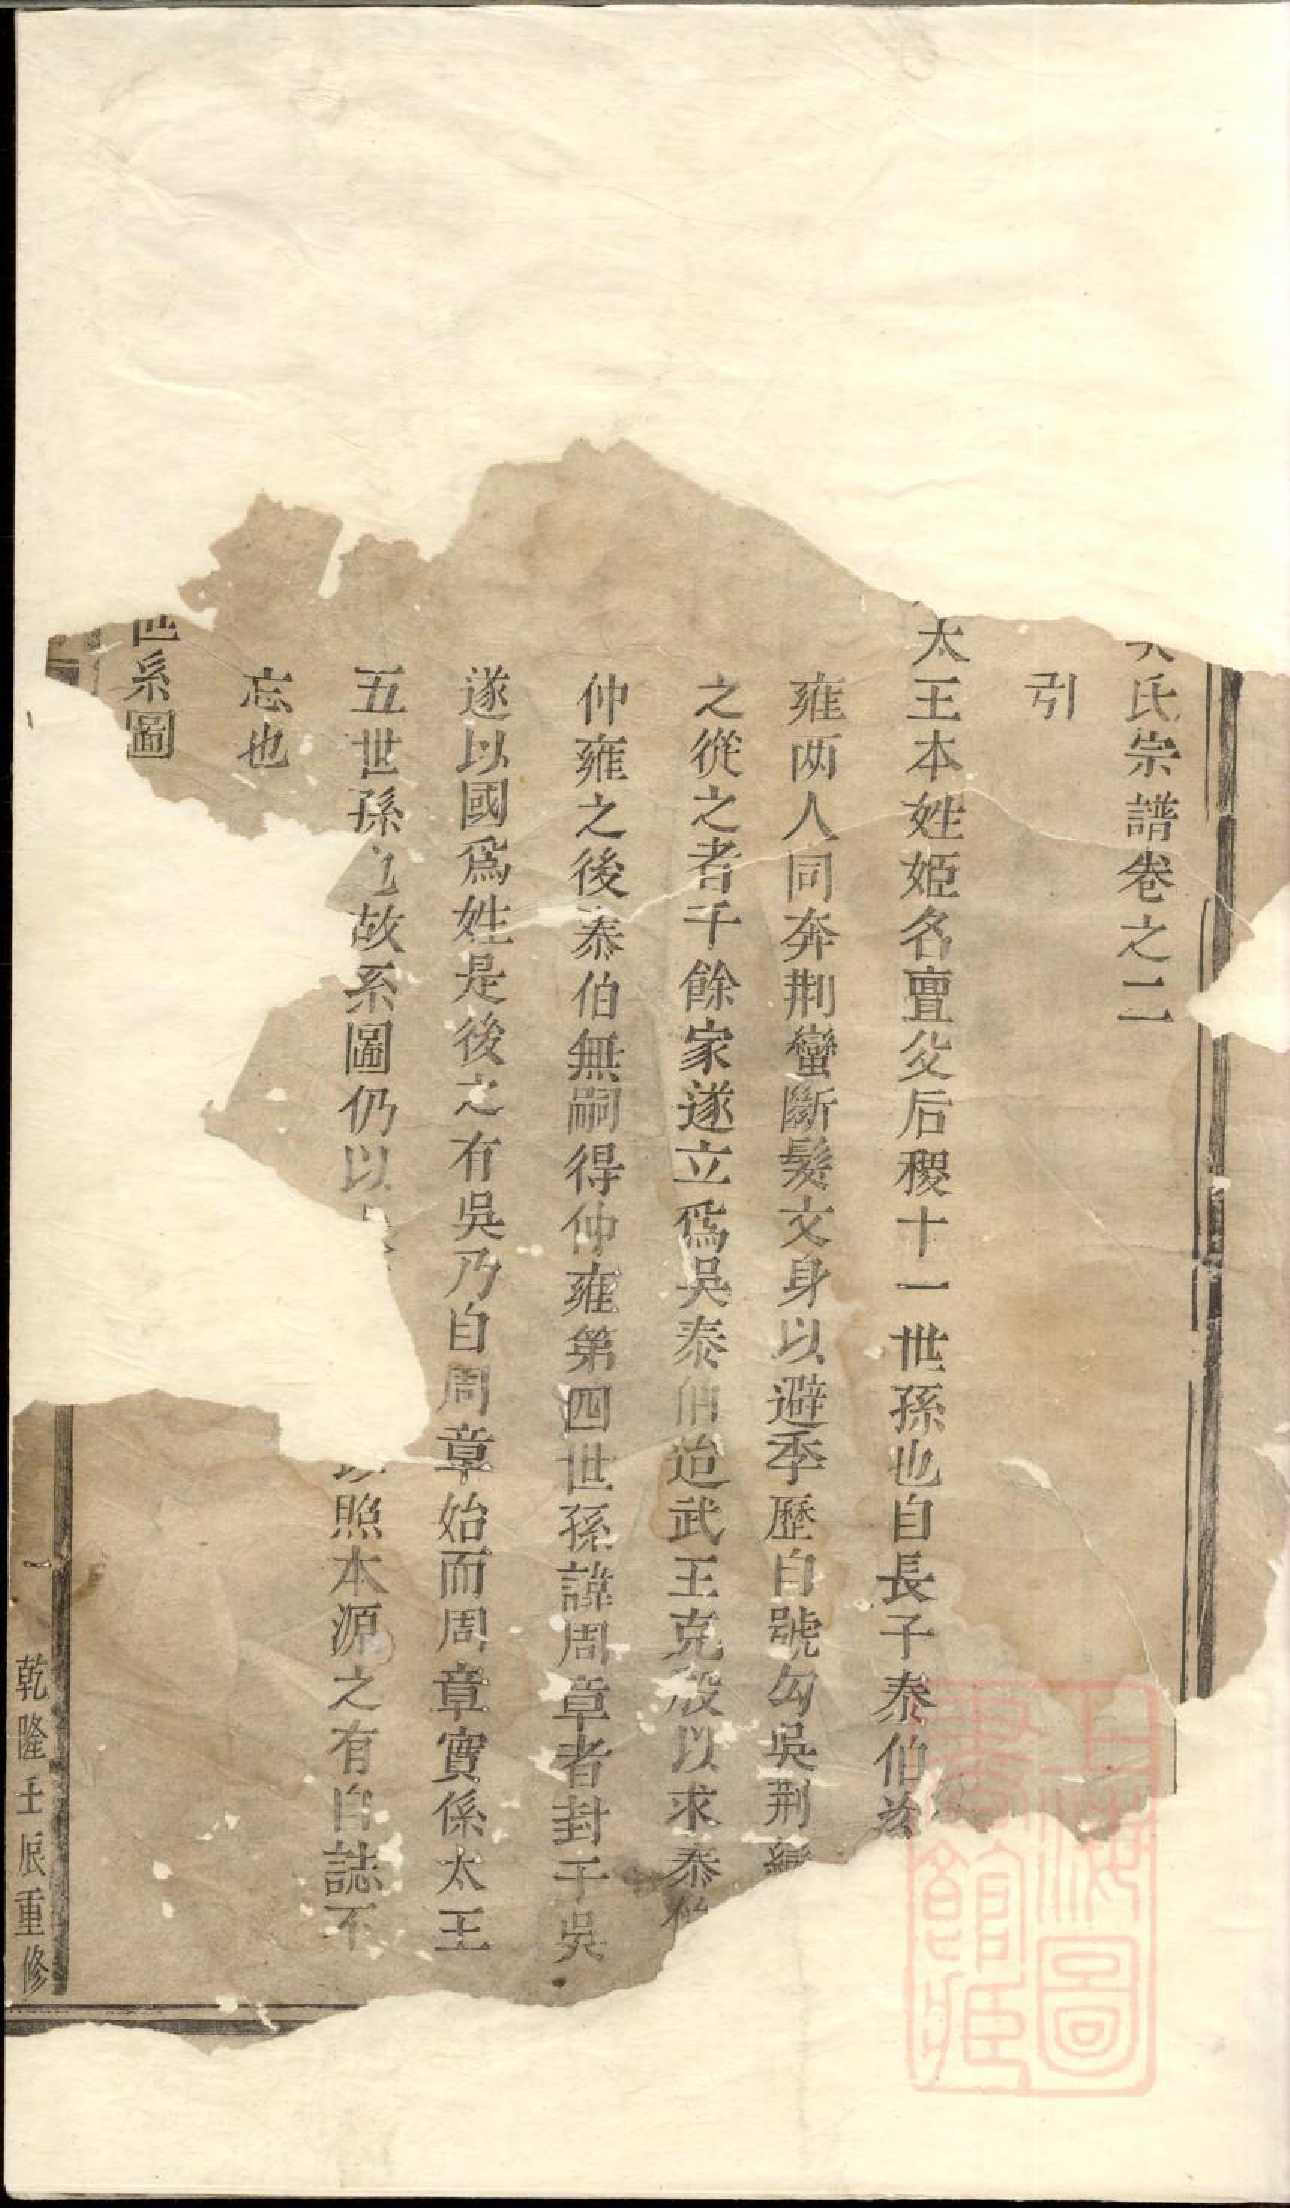 氏宗譜卷之二
引
太王本姓姬名亶父后稷十一世孫也自長子泰伯
雍两人同奔荆蠻斷髮文身以避季歷自號勾吳荆蠻
之從之者千餘家遂立爲吳泰伯迨武王克殷以求泰伯
仲雍之後泰伯無嗣得仲雍第四世孫諱周章者封于吳
遂以國爲姓是後之有吳乃自周章始而周章實係太王
五世孫也故系圖仍以
照本源之有自誌不
忘也
世系圖
一
乾隆壬辰重修
上海圖書館藏